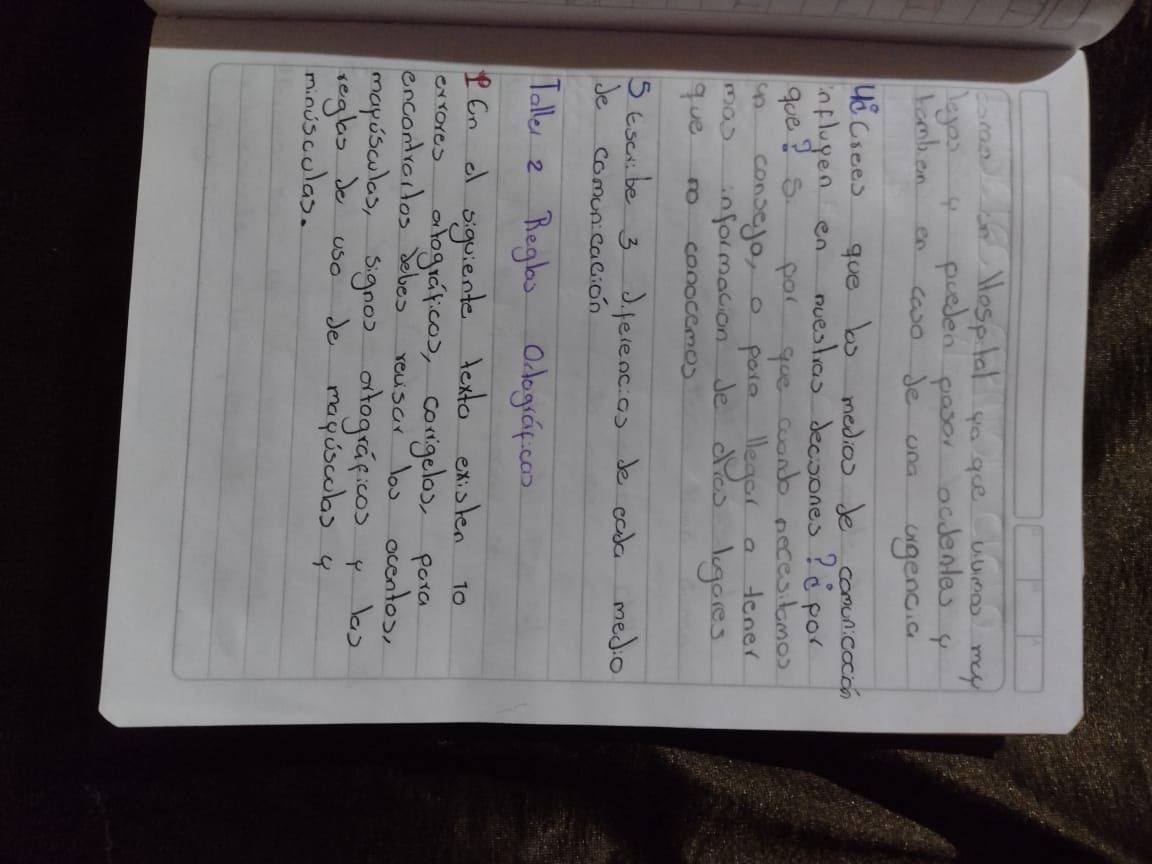 como un Hospital ya que vivimos muy
lejos y pueden pasar acidentes y
tambien en caso de una urgencia
4¿Crees que los medios de comunicación
influyen en nuestras decisiones? ¿por
que? Si por que cuando necesitamos
un consejo, o para llegar a tener
mas informacion de otros lugares
que no conocemos
5 Escribe 3 diferencias de cada medio
de comunicación
Taller 2 Reglas Ortográficas
1 En el siguiente texto existen 10
errores ortográficos, corrigelos, para
encontrarlos debes revisar los acentos,
mayúsculas, signos ortográficos y las
reglas de uso de mayúsculas y
minúsculas.